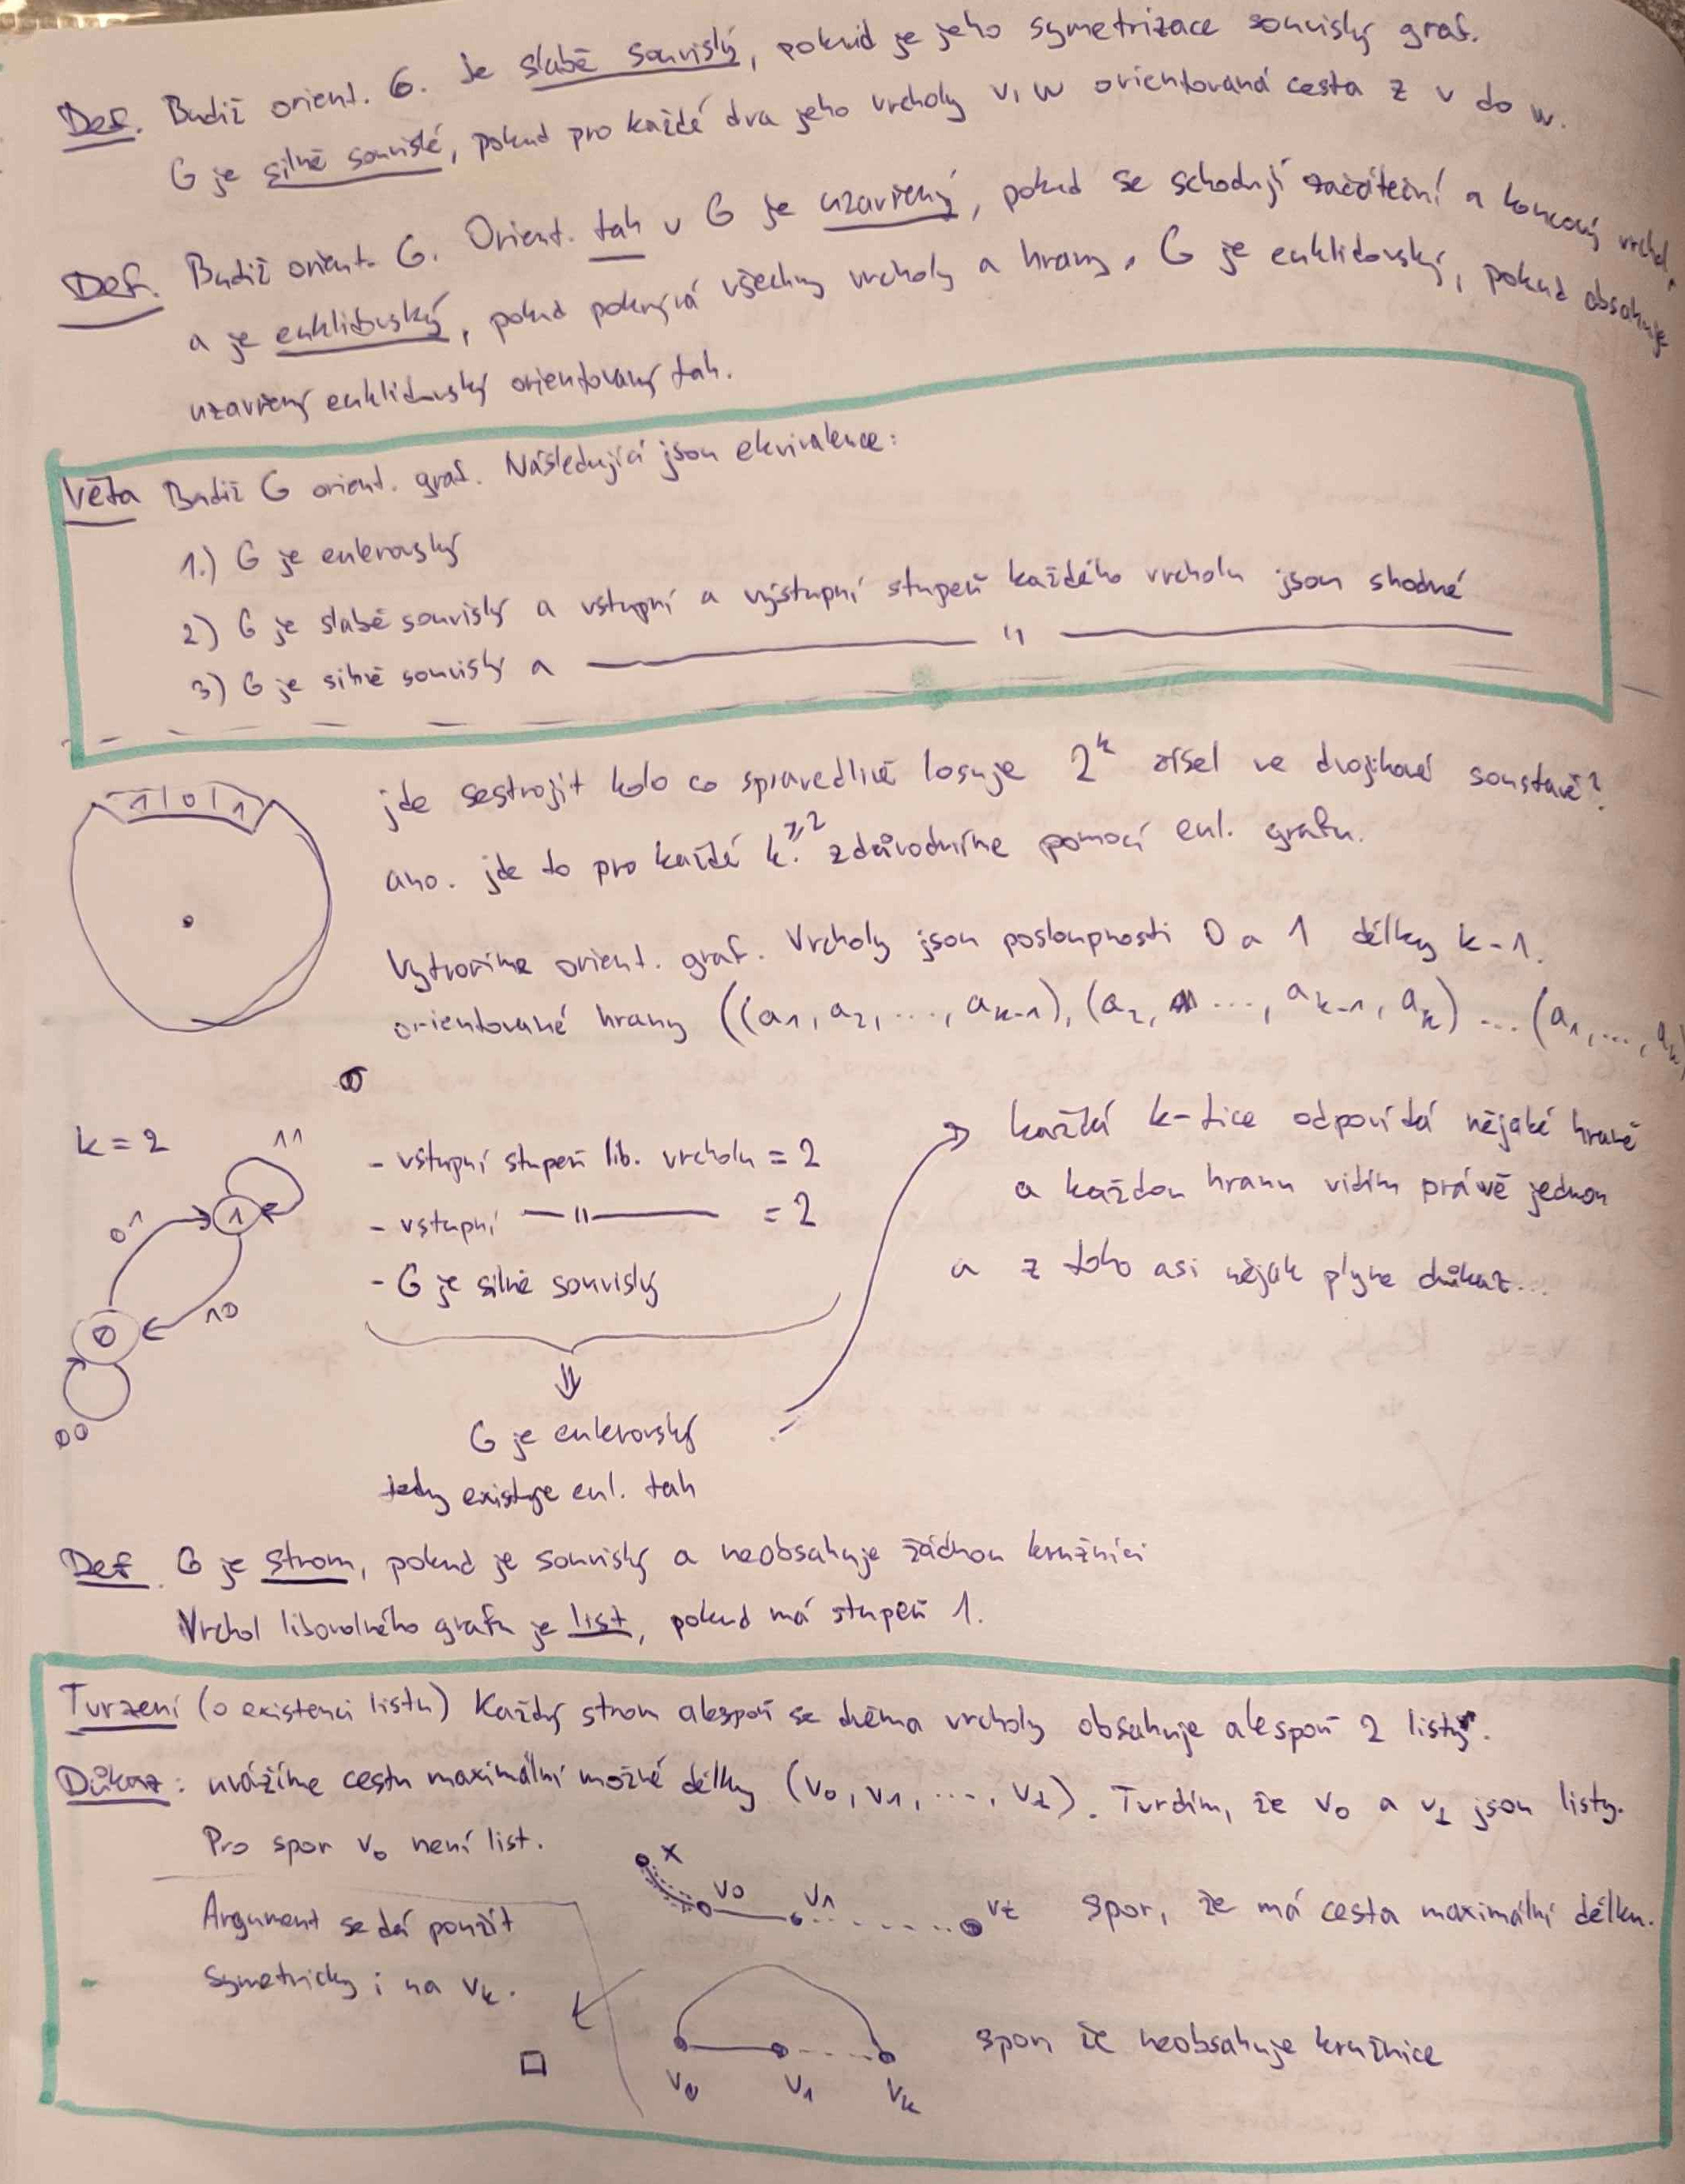 Def. Budiž orient. G. Je slabě souvislý, pokud je jeho symetrizace souvislý graf.
G je silně souvislé, pokud pro každé dva jeho vrcholy v, w orientovaná cesta z v do w.
Def. Budiž orient. G. Orient. tah v G je uzavřený, pokud se schodují začáteční a koncový vrchol,
a je euklidovský, pokud pokrývá všechny vrcholy a hrany. G je euklidovský, pokud obsahuje
uzavřený euklidovský orientovaný tah.
Věta Budiž G orient. graf. Následující jsou ekvivalence:
1.) G je eulerovský
2) G je slabě souvislý a vstupní a výstupní stupeň každého vrcholu jsou shodné
3) G je silně souvislý a —————— " ——————
1 0 1
jde sestrojit kolo co spravedlivě losuje 2^k čísel ve dvojkové soustavě?
ano. jde to pro každé k ≥ 2. zdůvodníme pomocí eul. grafu.
Vytvoříme orient. graf. Vrcholy jsou posloupnosti 0 a 1 délky k-1.
orientované hrany ((a1, a2, ..., ak-1), (a2, ..., ak-1, ak) ... (a1, ..., ak)
k = 2
11
01
1
10
0
00
- vstupní stupeň lib. vrcholu = 2
- vstupní — " — = 2
- G je silně souvislý
⇓
G je eulerovský
tedy existuje eul. tah
každá k-tice odpovídá nějaké hraně
a každou hranu vidím právě jednou
a z toho asi nějak plyne důkaz...
Def. G je strom, pokud je souvislý a neobsahuje žádnou kružnici
Vrchol libovolného grafu je list, pokud má stupeň 1.
Tvrzení (o existenci listu) Každý strom alespoň se dvěma vrcholy obsahuje alespoň 2 listy.
Důkaz: uvážíme cestu maximální možné délky (v0, v1, ..., vk). Tvrdím, že v0 a vk jsou listy.
Pro spor v0 není list.
x v0 v1 vk spor, že má cesta maximální délku.
Argument se dá použít
symetricky i na vk.
□
v0 v1 vk
spor, že neobsahuje kružnice